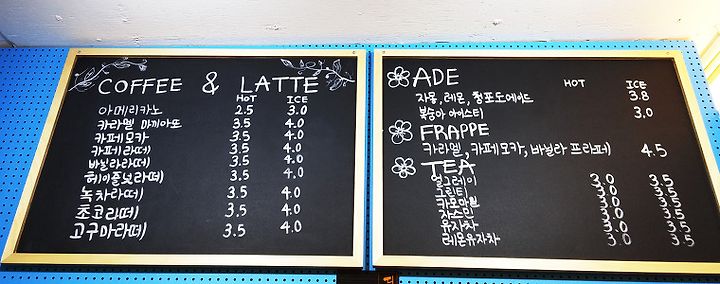 COFFEE & LATTE
HOT ICE
아메리카노 2.5 3.0
카라멜 마끼아또 3.5 4.0
카페모카 3.5 4.0
카페라떼 3.5 4.0
바닐라라떼 3.5 4.0
헤이즐넛라떼 3.5 4.0
녹차라떼 3.5 4.0
초코라떼 3.5 4.0
고구마라떼 3.5 4.0
ADE HOT ICE
자몽, 레몬, 청포도에이드 3.8
복숭아 아이스티 3.0
FRAPPE
카라멜, 카페모카, 바닐라 프라페 4.5
TEA
얼그레이 3.0 3.5
그린티 3.0 3.5
카모마일 3.0 3.5
자스민 3.0 3.5
유자차 3.0 3.5
레몬유자차 3.0 3.5